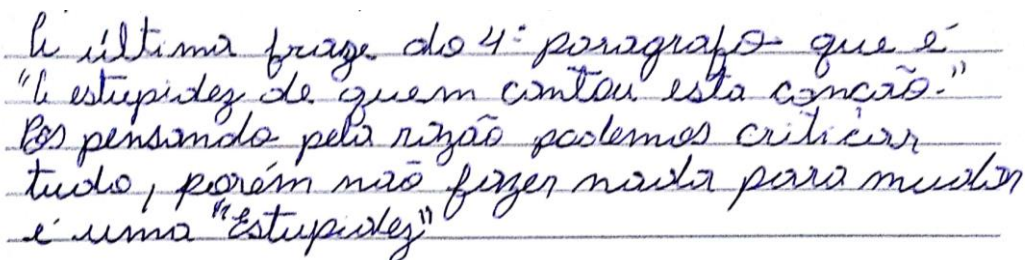 A última fraze do 4º paragrafo que é
"A estupidez de quem cantou esta canção."
Pos pensando pela razão podemos criticar
tudo, porém não fazer nada para mudar
é uma "Estupidez"